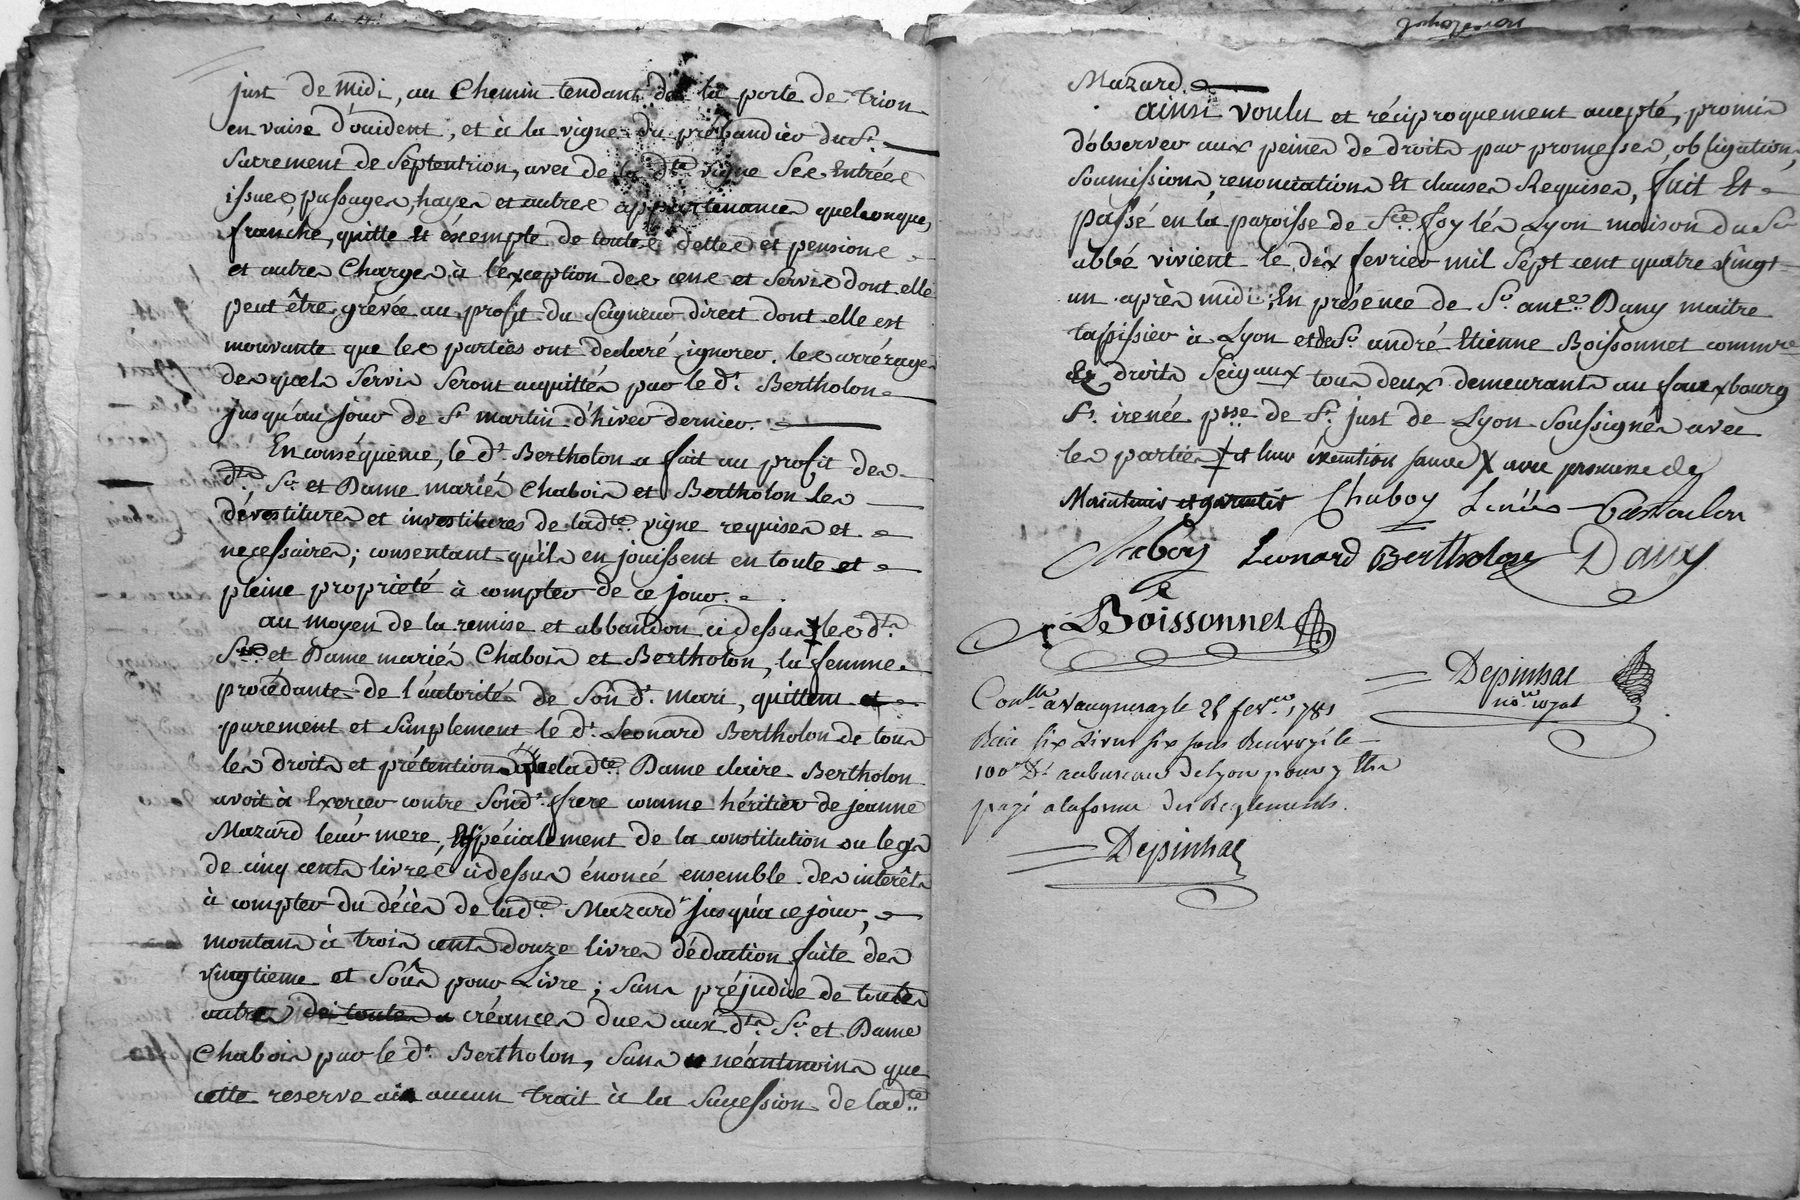 just de midi, au Chemin tendant de la porte de trion
en vaise d'occident, et à la vigne du prébandier du St.
Sacrement de Septentrion, avec de la dte. vigne Ses Entrées
issues, passages, hayes et autres appartenances quelconque,
franche, quitte Et éxempte de toutes dettes et pensions
et autres Charges à l'exception des cens et Servis dont elle
peut être grévée au profit du Seigneur direct dont elle est
mouvante que les parties ont declaré ignorer. les arrérages
desquels Servis Seront acquittés par le dt. Bertholon
jusqu'au jour de St martin d'hiver dernier.
En conséquence, le dt. Bertholon a fait au profit des
dts. Sr. et Dame mariés Chabois et Bertholon les
dévestitures et investitures de ladte. vigne requises et
necessaires; consentant qu'ils en jouissent en toute et
pleine proprieté à compter de ce jour.
au moyen de la remise et abbandon ci dessus les dts.
Sr. et Dame mariés Chabois et Bertholon, la femme
procédante de l'autorité de Son dt. mari, quittent et
purement et Simplement le dt. Leonard Bertholon de tous
les droits et prétentions que ladte. Dame claire Bertholon
avoit à Exercer contre Sondt. frere comme héritier de jeanne
Mazard leur mere, Espécialement de la constitution ou legs
de cinq cents livres cidessus énoncé ensemble des interêts
à compter du décès de ladte. Mazard jusqu'à ce jour,
montans à trois cents douze livres déduction faite des
vingtieme et Sous pour Livre; Sans préjudice de toutes
autres de toutes créances dues aux dts. Sr. et Dame
Chabois par le dt. Bertholon, Sans néantmoins que
cette reserve ait aucun trait à la Succession de ladte.
Mazard.
ainsi voulu et réciproquement accepté, promis
d'observer aux peines de droits par promesses, obligations,
Soumissions, renonciations Et clauses Requises, fait Et
passé en la paroisse de Ste. foy lès Lyon maison du Sr
abbé vivient le dix fevrier mil Sept cent quatre vingt
un après midi; En présence de Sr. ante. Dany maitre
tapissier à Lyon et de Sr. andré Etienne Boissonnet commre
Es droits Seigaux tous deux demeurants au fauxbourg
St. irenée psse. de St. just de Lyon Soussignés avec
les parties avec promesse de
Maintenir et garantir Chaboy
Leonard Bertholon Dany
Boissonnet
Depinhac
no. royal
Conlle. a Vaugneray le 21 fevrier. 1781
Recu Six Livres Six Sous Renvoyé le
100e. Dr. au bureau de Lyon pour y Etre
payé a la forme des Reglements.
Depinhac